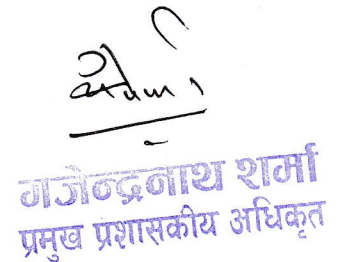 गजेन्द्रनाथ शर्मा
प्रमुख प्रशासकीय अधिकृत